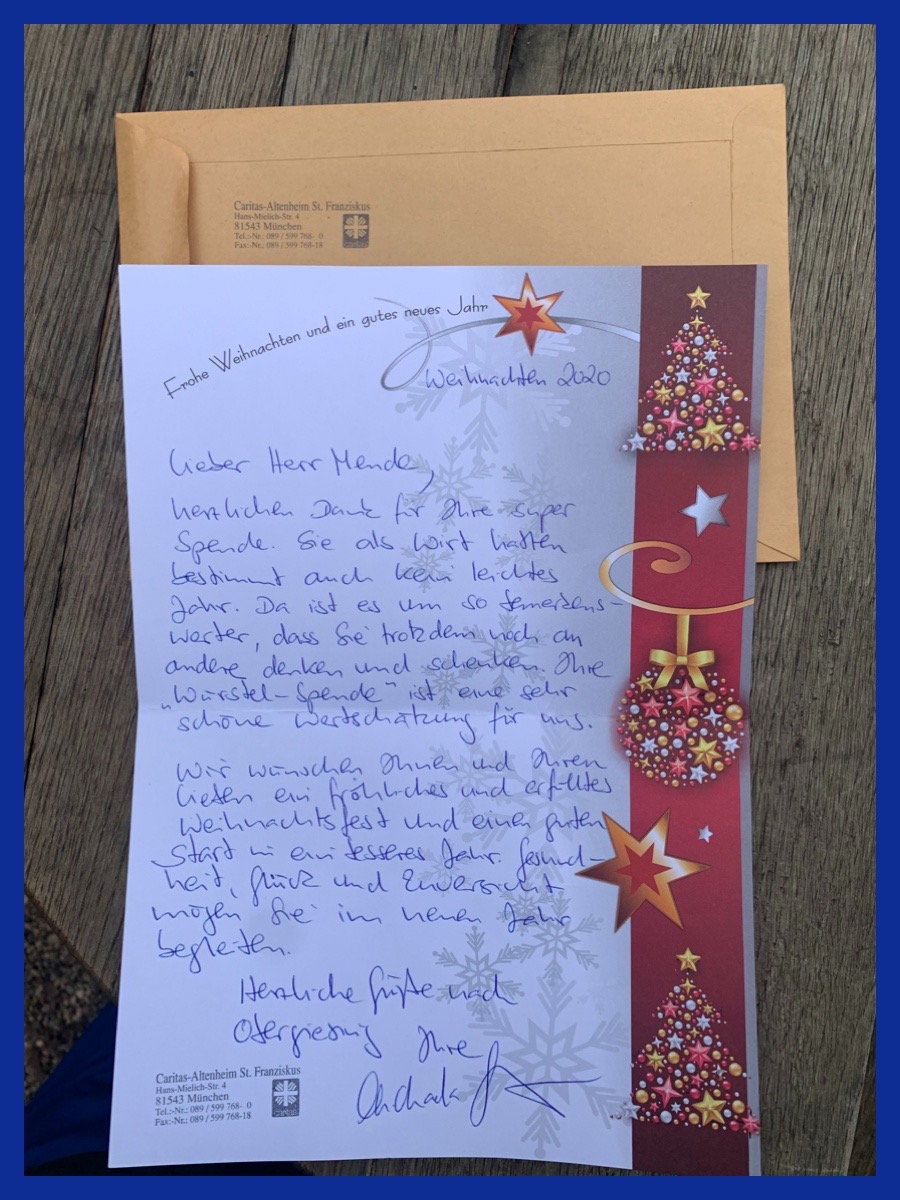 Caritas-Altenheim St. Franziskus
Hans-Mielich-Str. 4
81543 München
Tel.:-Nr.: 089 / 599 768- 0
Fax:-Nr.: 089 / 599 768-18
Frohe Weihnachten und ein gutes neues Jahr
Weihnachten 2020
Lieber Herr Mende,
herzlichen Dank für Ihre super
Spende. Sie als Wirt hatten
bestimmt auch kein leichtes
Jahr. Da ist es um so bemerkens-
werter, dass Sie trotzdem noch an
andere denken und schenken. Ihre
„Würstel-Spende" ist eine sehr
schöne Wertschätzung für uns.
Wir wünschen Ihnen und Ihren
Lieben ein fröhliches und erfülltes
Weihnachtsfest und einen guten
Start in ein besseres Jahr. Gesund-
heit, Glück und Zuversicht
mögen Sie im neuen Jahr
begleiten.
Herzliche Grüße nach
Obergiesing Ihre
Caritas-Altenheim St. Franziskus
Hans-Mielich-Str. 4
81543 München
Tel.:-Nr.: 089 / 599 768- 0
Fax:-Nr.: 089 / 599 768-18